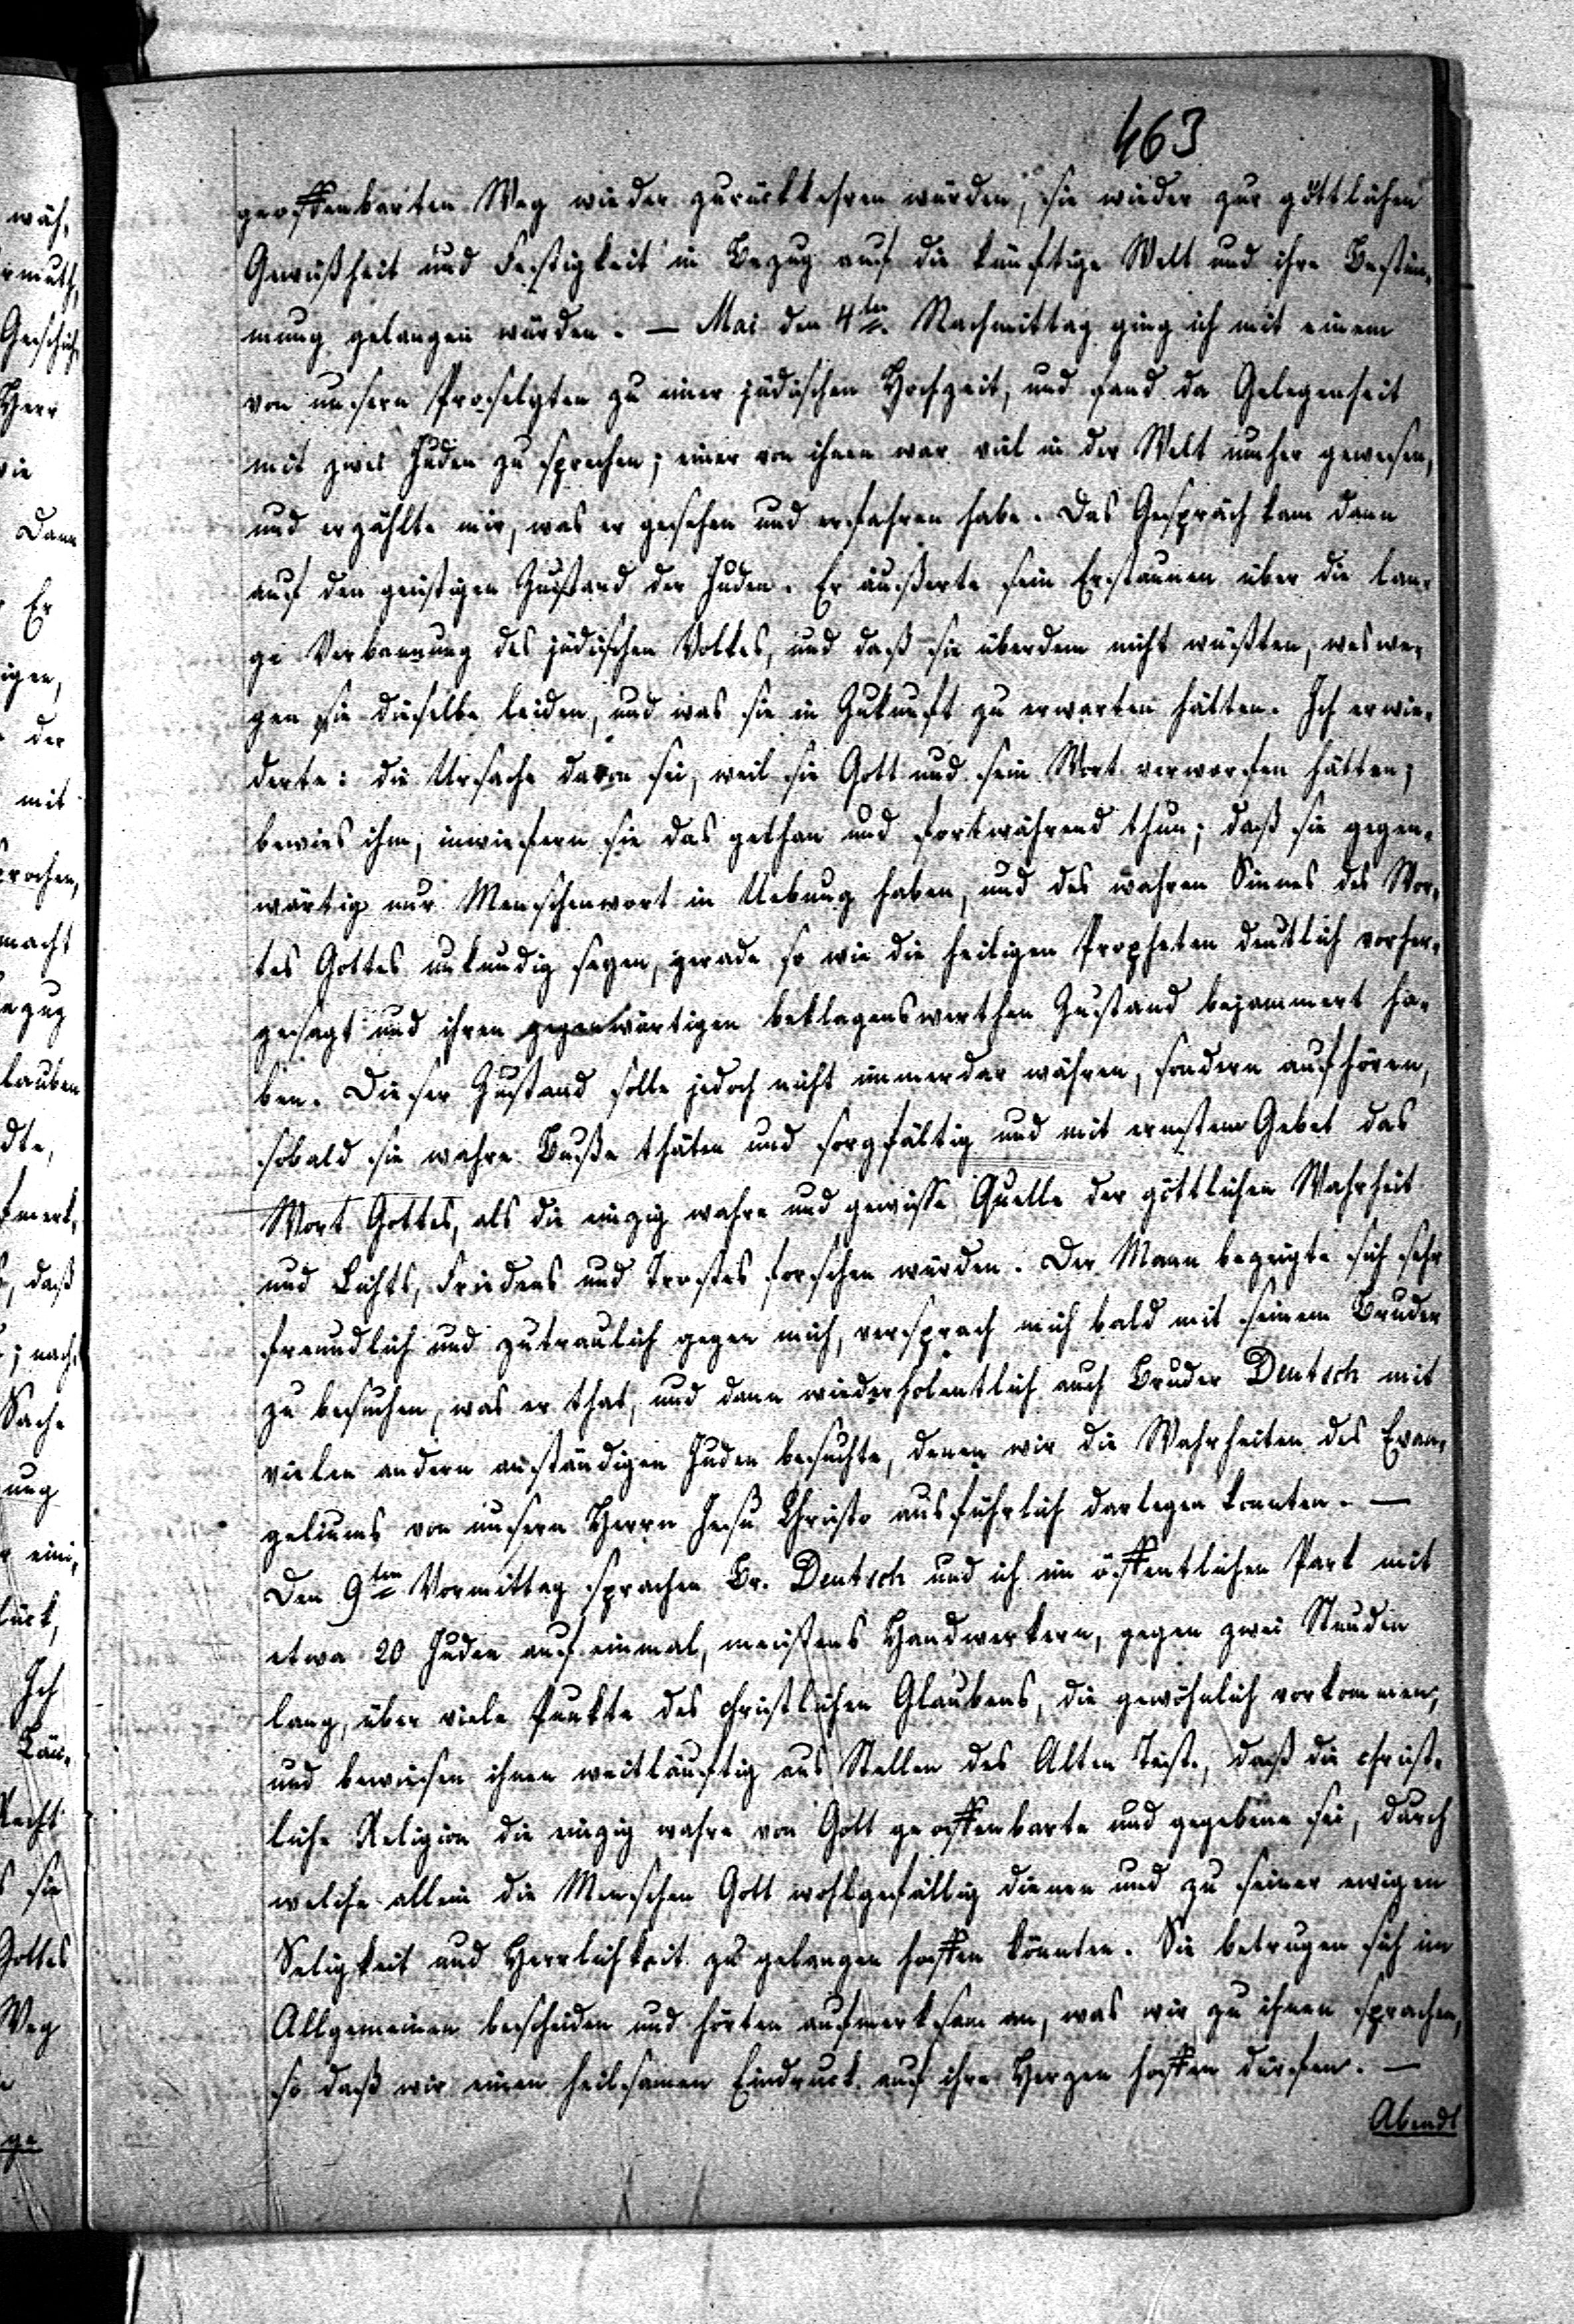 463
geoffenbarten Weg wieder zurückkehren würden, sie wieder zur göttlichen
Gewißheit und Festigkeit in Bezug auf die künftige Welt und ihre Bestim-
mung gelangen würden. — Mai den 4ten Nachmittag ging ich mit einem
von unsern Proselyten zu einer jüdischen Hochzeit, und fand da Gelegenheit
mit zwei Juden zu sprechen; einer von ihnen war viel in der Welt umher gewesen,
und erzählte mir, was er gesehen und erfahren habe. Das Gespräch kam dann
auf den geistigen Zustand der Juden. Er äußerte sein Erstaunen über die lan-
ge Verbannung des jüdischen Volkes, und daß sie überdem nicht wüßten, weswe-
gen sie dieselbe leiden, und was sie in Zukunft zu erwarten hätten. Ich erwie-
derte: die Ursache davon sei, weil sie Gott und sein Wort verworfen hätten;
bewies ihm, inwiefern sie das gethan und fortwährend thun; daß sie gegen-
wärtig nur Menschenwort in Uebung haben, und des wahren Sinnes des Wor-
tes Gottes unkundig seyen, gerade so wie die heiligen Propheten deutlich vorher-
gesagt und ihren gegenwärtigen beklagenswerthen Zustand bejammert ha-
ben. Dieser Zustand solle jedoch nicht immerdar währen, sondern aufhören,
sobald sie wahre Buße thäten und sorgfältig und mit ernstem Gebet das
Wort Gottes, als die einzig wahre und gewisse Quelle der göttlichen Wahrheit
und Lichts, Friedens und Trostes forschen würden. Der Mann bezeigte sich sehr
freundlich und zutraulich gegen mich, versprach mich bald mit seinem Bruder
zu besuchen, was er that, und dann wiederholentlich auch Bruder Deutsch mit
vielen andern anständigen Juden besuchte, denen wir die Wahrheiten des Evan-
geliums von unserm Herrn Jesu Christo ausführlich darlegen konnten. —
Den 9ten Vormittag sprachen Br. Deutsch und ich im öffentlichen Park mit
etwa 20 Juden auf einmal, meistens Handwerkern, gegen zwei Stunden
lang, über viele Punkte des christlichen Glaubens, die gewöhnlich vorkommen,
und bewiesen ihnen weitläuftig aus Stellen des Alten Test., daß die christ-
liche Religion die einzig wahre von Gott geoffenbarte und gegebene sei, durch
welche allein die Menschen Gott wohlgefällig dienen und zu seiner ewigen
Seligkeit und Herrlichkeit zu gelangen hoffen könnten. Sie betrugen sich im
Allgemeinen bescheiden und hörten aufmerksam an, was wir zu ihnen sprachen,
so daß wir einen heilsamen Eindruck auf ihre Herzen hoffen dürfen. —
Abends